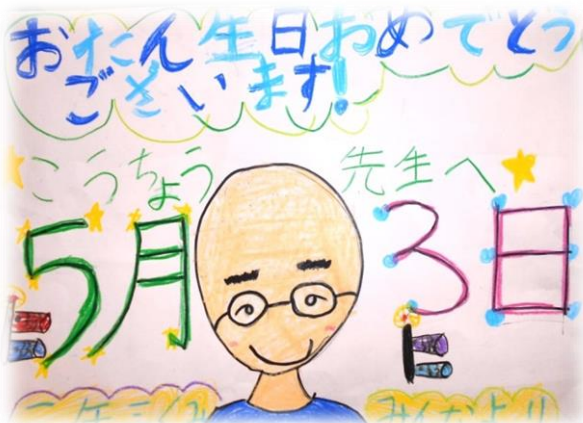 おたん生日おめでとう
ございます!
こうちょう先生へ
5月3日
みんなより